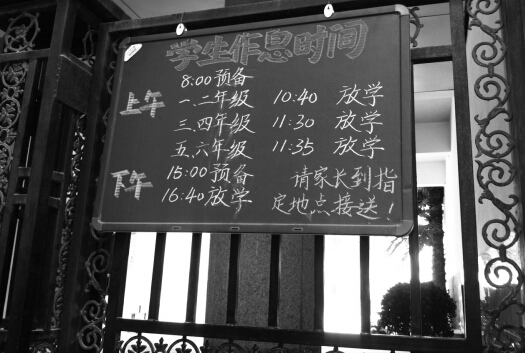 学生作息时间
上午
8:00 预备
一.二年级 10:40 放学
三.四年级 11:30 放学
五.六年级 11:35 放学
下午
15:00 预备
16:40 放学
请家长到指
定地点接送！